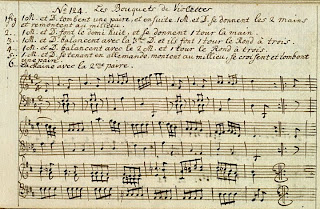 No 124. Les Bouquets de Violettes
1 M. et D. tombent une paire, et ensuite 1 M. et D. se donnent les 2 mains
et remontent au milieu.
2. 1 M. et D. font le demi huit, et se donnent 1 tour la main
3. 1 M. et D. balancent avec la 3me D. et ils font 1 tour le Rond à trois.
4. balancent avec le 2 M. et 1 tour le Rond à trois.
5. 1 M. et D. se tenant en allemande, montent au milieu, se croisent et tombent
une paire.
6. Chaine avec la 2me paire.